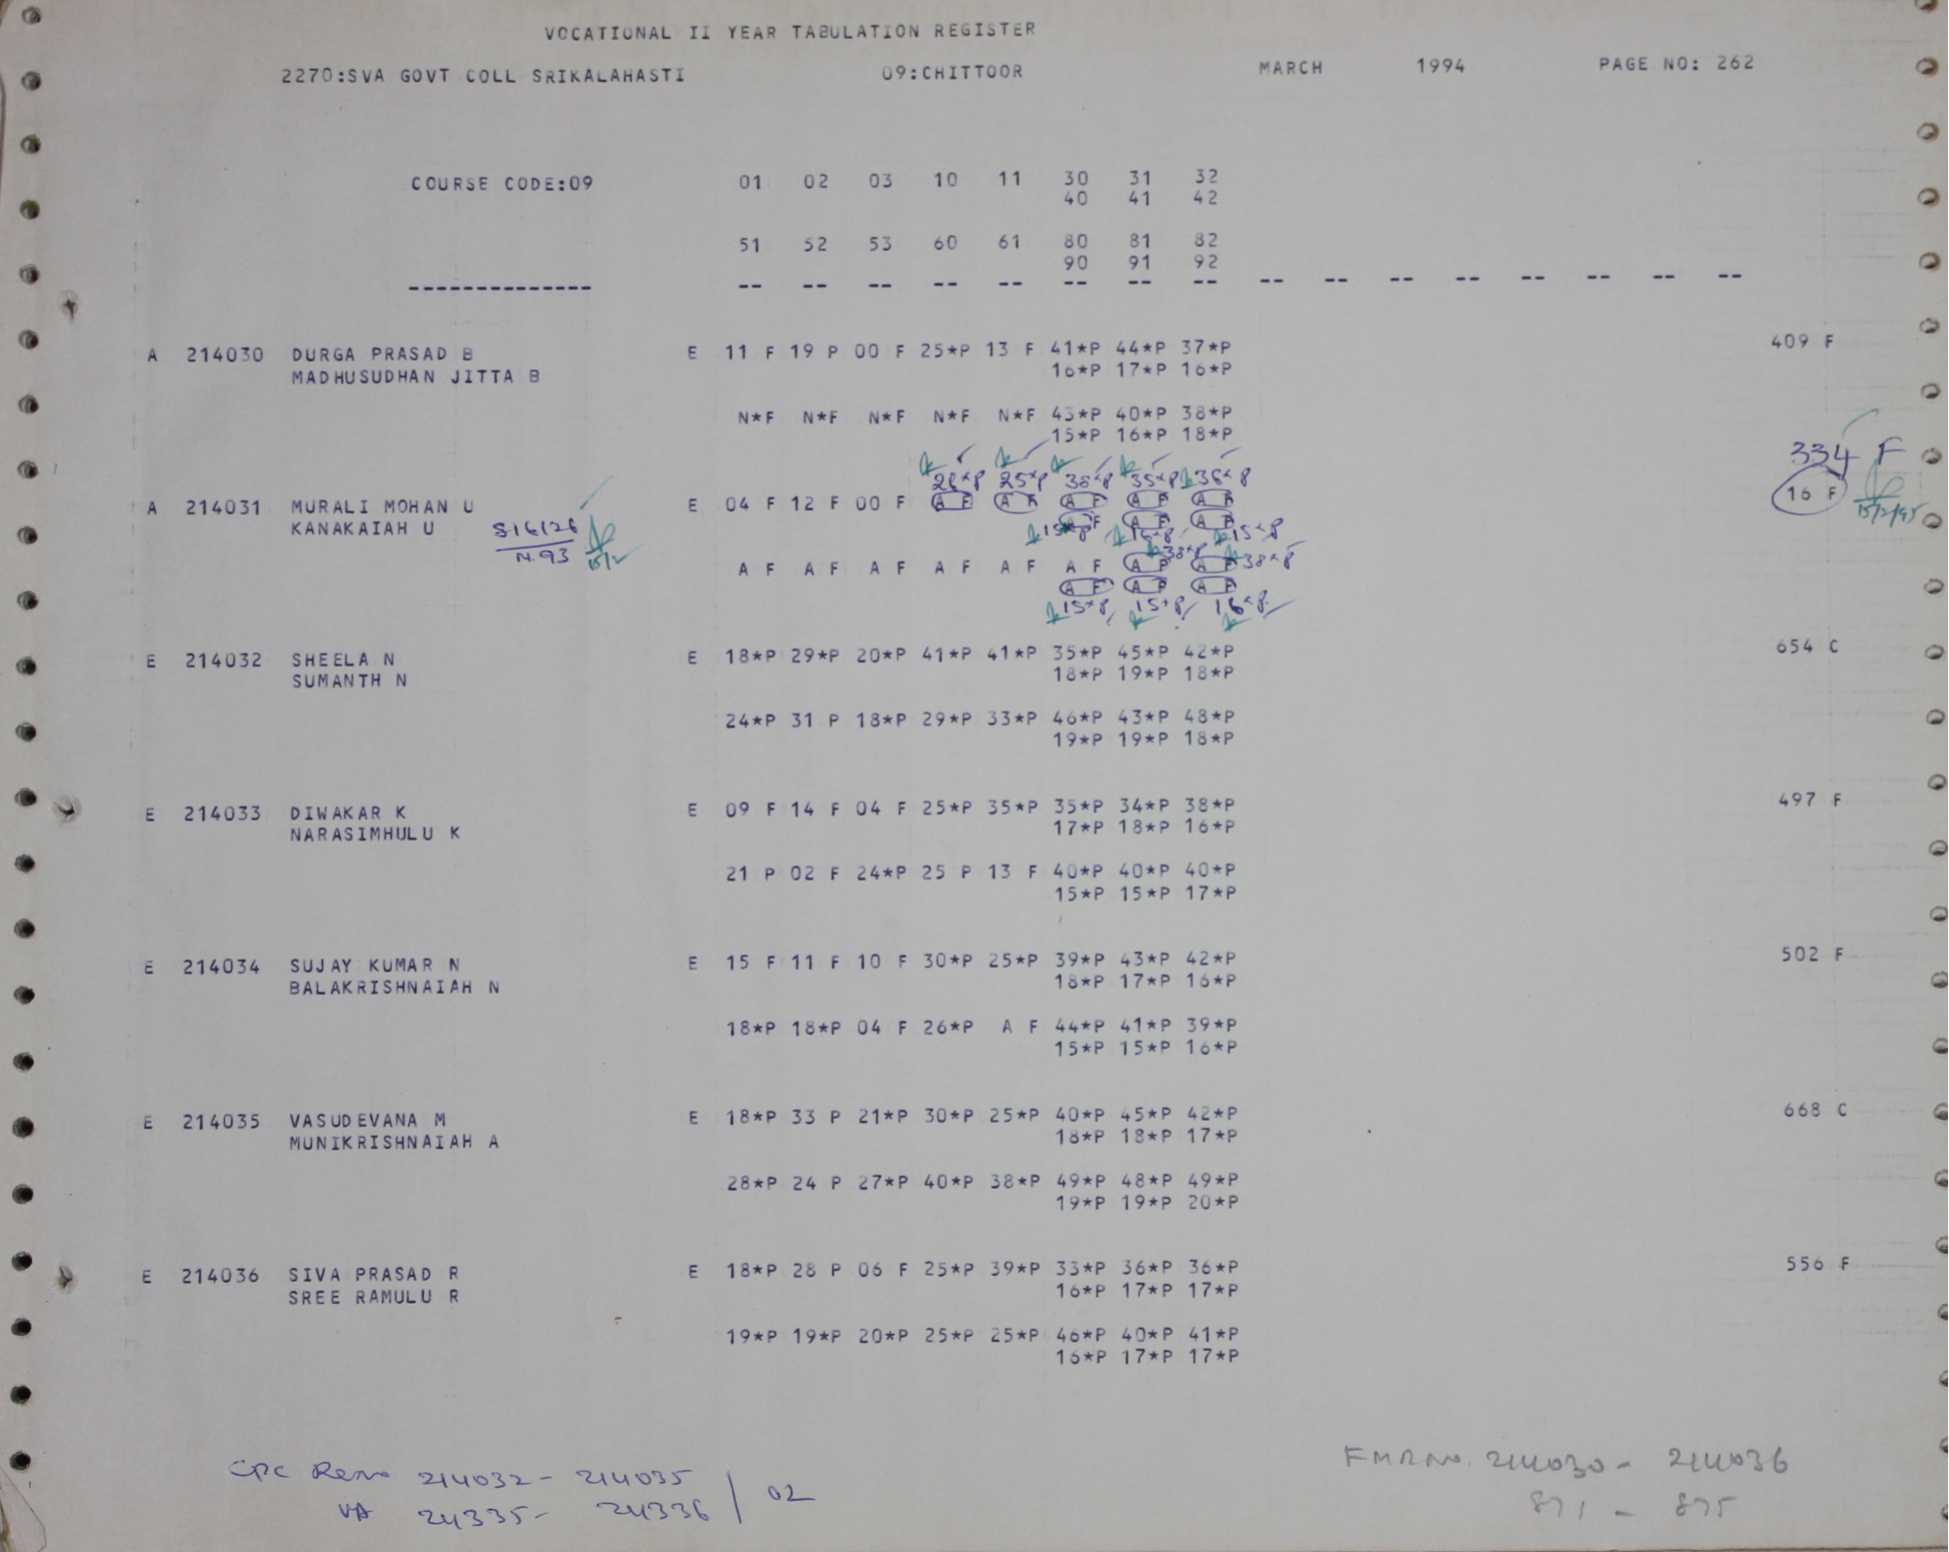 VOCATIONAL II YEAR TABULATION REGISTER
2270:SVA GOVT COLL SRIKALAHASTI 09:CHITTOOR MARCH 1994 PAGE NO: 262
COURSE CODE:09 01 02 03 10 11 30 31 32
40 41 42
51 52 53 60 61 80 81 82
90 91 92
-------------- -- -- -- -- -- -- -- -- -- -- -- -- -- -- -- --
A 214030 DURGA PRASAD B E 11 F 19 P 00 F 25*P 13 F 41*P 44*P 37*P 409 F
MADHUSUDHAN JITTA B 16*P 17*P 16*P
N*F N*F N*F N*F N*F 43*P 40*P 38*P
15*P 16*P 18*P
334 F
25*P 35*P
A 214031 MURALI MOHAN U E 04 F 12 F 00 F A F A F A F A F A F 16 F
KANAKAIAH U S16126 A F A F A F 15/2/95
N.93 15/2 15*P 16*P 15*P
38*P
A F A F A F A F A F A F A F A F 38*P
A F A F A F
15*P 15*P 16*P
E 214032 SHEELA N E 18*P 29*P 20*P 41*P 41*P 35*P 45*P 42*P 654 C
SUMANTH N 18*P 19*P 18*P
24*P 31 P 18*P 29*P 33*P 46*P 43*P 48*P
19*P 19*P 18*P
E 214033 DIWAKAR K E 09 F 14 F 04 F 25*P 35*P 35*P 34*P 38*P 497 F
NARASIMHULU K 17*P 18*P 16*P
21 P 02 F 24*P 25 P 13 F 40*P 40*P 40*P
15*P 15*P 17*P
E 214034 SUJAY KUMAR N E 15 F 11 F 10 F 30*P 25*P 39*P 43*P 42*P 502 F
BALAKRISHNAIAH N 18*P 17*P 16*P
18*P 18*P 04 F 26*P A F 44*P 41*P 39*P
15*P 15*P 16*P
E 214035 VASUDEVANA M E 18*P 33 P 21*P 30*P 25*P 40*P 45*P 42*P 668 C
MUNIKRISHNAIAH A 18*P 18*P 17*P
28*P 24 P 27*P 40*P 38*P 49*P 48*P 49*P
19*P 19*P 20*P
E 214036 SIVA PRASAD R E 18*P 28 P 06 F 25*P 39*P 33*P 36*P 36*P 556 F
SREE RAMULU R 16*P 17*P 17*P
19*P 19*P 20*P 25*P 25*P 46*P 40*P 41*P
16*P 17*P 17*P
CPC 214032 - 214035 / 02
24335 - 24336
214030 - 214036
871 - 875